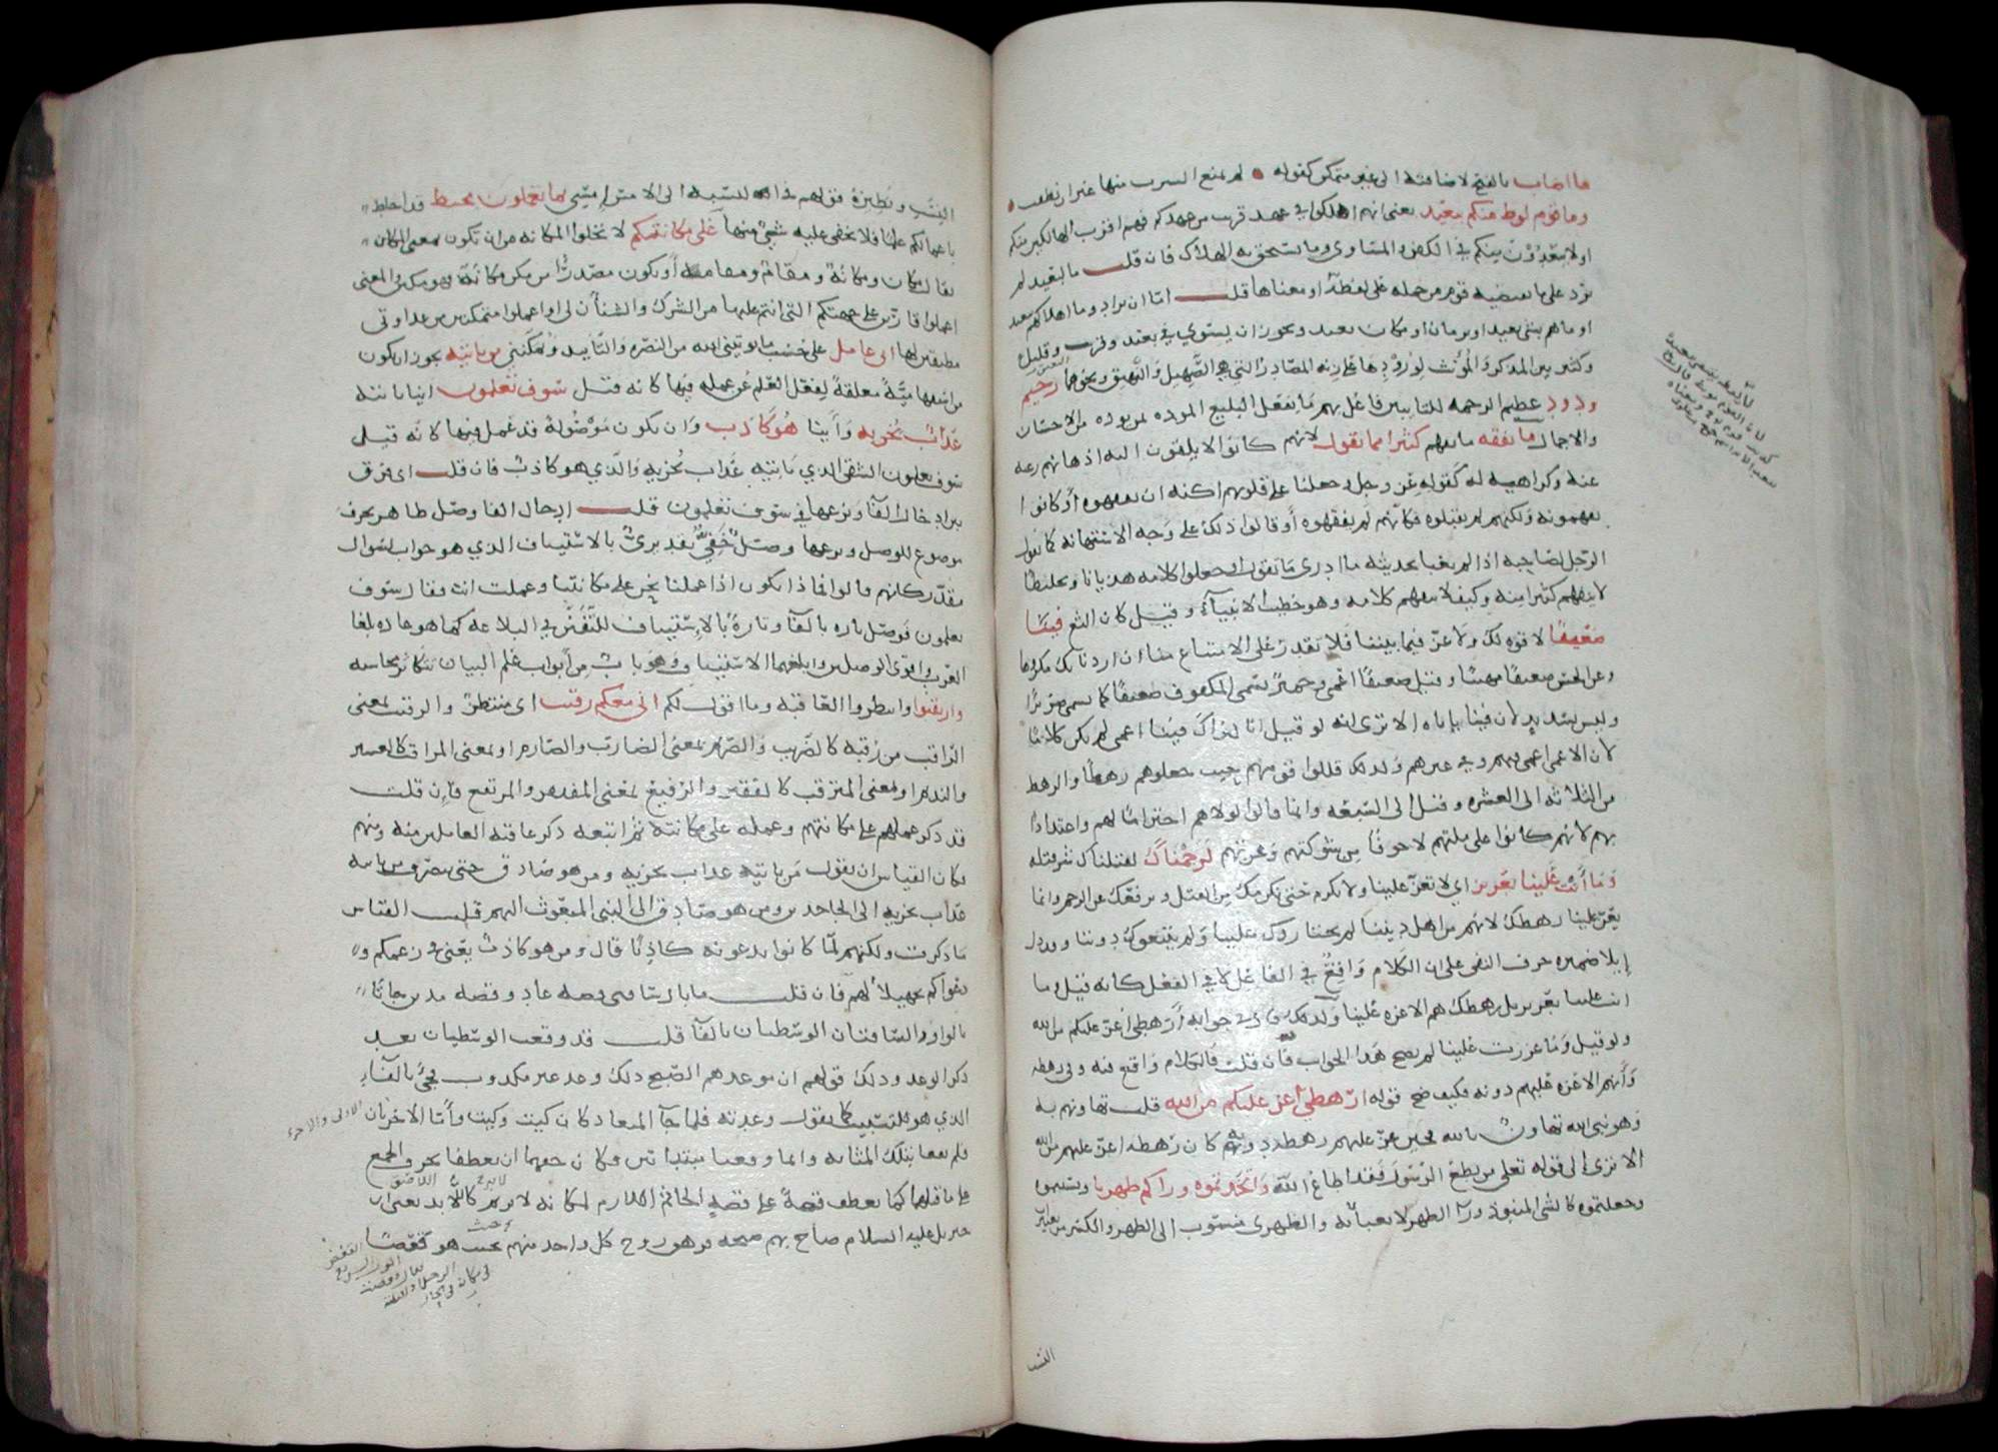 ما اصاب بالفتح لاضافته الى غير متمكن كقوله لم يمنع الشرب منها غير ان نطقت
وما قوم لوط منكم ببعيد يعني انهم اهلكوا في عهد قريب من عهدكم فهم اقرب الهالكين منكم
اولا يبعدون منكم في الكفر والمساوي وما يستحق به الهلاك فان قلت ما لبعيد لم
يرد على ما يقتضيه قوم من حمله على لفظه او معناها قلت اما ان يراد وما اهلاكهم ببعيد
او ما هم بشي بعيد او بزمان او مكان بعيد ويجوز ان يستوي في بعيد وقريب وقليل
وكثير بين المذكر والمؤنث لورودها على زنه المصادر التي هي الصهيل والنهيق ونحوهما رحيم
ودود عظيم الرحمه للتايبين فاعل بهم ما يفعل البليغ الموده بمن يوده من الاحسان
والاجمال ما نفقه ما نفهم كثيرا مما تقول لانهم كانوا لا يلقون اليه اذهانهم رغبه
عنه وكراهيه له كقوله عز وجل وجعلنا على قلوبهم اكنه ان يفقهوه أو كانوا
يفهمونه ولكنهم لم يقبلوه فكانهم لم يفقهوه أو قالوا ذلك على وجه الاستهانه كما يقول
الرجل لصاحبه اذا لم يعبا بحديثه ما ادري ما تقول او جعلوا كلامه هذيانا وتخليطا
لا ينفهم كثير منه وكيف لا ينفهم كلامه وهو خطيب الانبيآء وقيل كان الثغ فينا
ضعيفا لا قوه لك ولا عز فيما بيننا فلا تقدر على الامتناع منا ان اردنا بك مكروها
وعن الحسن ضعيفا مهينا وقيل ضعيفا اعمى وحمير تسمى المكفوف ضعيفا كما يسمى ضريرا
وليس بسديد لان فينا ياباه الا ترى انه لو قيل انا لنراك فينا اعمى لم يكن كلاما
لان الاعمى اعمى فيهم وفي غيرهم ولذلك قللوا قومهم حيث جعلوهم رهطا والرهط
من الثلاثه الى العشره وقيل الى السبعه وانما قالوا لولاهم احتراما لهم واعتدادا
بهم لانهم كانوا على ملتهم لا خوفا من شوكتهم وعزتهم لرجمناك لقتلناك شر قتله
وما أنت علينا بعزيز اي لا تعز علينا ولا تكرم حتى نكرمك من القتل ونرفعك عن الرجم وانما
يعز علينا رهطك لانهم من اهل ديننا لم يختاروك علينا ولم يتبعوك دوننا وقد دل
إيلا ضميره حرف النفي على ان الكلام واقع في الفاعل لا في الفعل كانه قيل وما
انت علينا بعزيز بل رهطك هم الاعزه علينا ولذلك قال في جوابه أرهطي أعز عليكم من الله
ولو قيل وما عززت علينا لم يصح هذا الجواب فان قلت فالكلام واقع فيه وفي رهطه
وأنهم الاعزه عليهم دونه فكيف صح قوله ارهطي اعز عليكم من الله قلت تهاونهم به
وهو نبي الله تهاون بالله فحين عز عليهم رهطه دونه كان رهطه اعز عليهم من الله
الا ترى الى قوله تعالى من يطع الرسول فقد اطاع الله واتخذتموه وراكم ظهريا ونسيتموه
وجعلتموه كالشي المنبوذ ورآ الظهر لا يعبأ به والظهري منسوب الى الظهر والكسر من تغييرات
النسب
النسب ونظيره قولهم في النسبه الى الامس إمسي بما تعملون محيط قد احاط
باعمالكم علما فلا يخفى عليه شيء منها على مكانتكم لا تخلوا المكانه من ان تكون بمعنى المكان
يقال مكان ومكانة ومقام ومقامه أو تكون مصدرا من مكن مكانة فهو مكين والمعنى
اعملوا قارين على جهتكم التي انتم عليها من الشرك والشنأن لي او اعملوا متمكنين من عداوتي
مطيقين لها اني عامل على حسب ما يوتيني الله من النصره والتاييد ويمكنني من ياتيه يجوز ان يكون
من استفهاميه معلقة لفعل العلم عن عمله فيها كانه قيل سوف تعلمون اينا ياتيه
عذاب يخزيه وأينا هو كاذب وان يكون موصولة قد عمل فيها كانه قيل
سوف تعلمون الشقي الذي ياتيه عذاب يخزيه والذي هو كاذب فان قلت اي فرق
بين ادخال الفآ ونزعها في سوف تعلمون قلت ادخال الفا وصل ظاهر بحرف
موضوع للوصل ونزعها وصل خفي تقديري بالاستيناف الذي هو جواب لسوال
مقدر كانهم قالوا فماذا يكون اذا عملنا نحن على مكانتنا وعملت انت فقال سوف
تعلمون فوصل تاره بالفآ وتارة بالاستيناف للتفنن في البلاغه كما هو عاده بلغا
العرب واقوى الوصلين وابلغهما الاستيناف وهو باب من أبواب علم البيان تتكاثر محاسنه
وارتقبوا وانتظروا العاقبه وما اقول لكم اني معكم رقيب اي منتظر والرقيب بمعنى
الراقب من رقبه كالضريب والصريم بمعنى الضارب والصارم او بمعنى المراقب كالعشير
والنديم او بمعنى المرتقب كالفقير والرفيع بمعنى المفتقر والمرتفع فإن قلت
قد ذكر عملهم على مكانتهم وعمله على مكانته ثم اتبعه ذكر عاقبه العاملين منه ومنهم
فكان القياس ان يقول من ياتيه عذاب يخزيه ومن هو صادق حتى ينصرف من ياتيه
عذاب يخزيه الى الجاحدين ومن هو صادق الى النبي المبعوث اليهم قلت القياس
ما ذكرت ولكنهم لما كانوا يدعونه كاذبا قال ومن هو كاذب يعني في زعمكم و
دعواكم تجهيلا لهم فان قلت ما بال ساقتي قصه عاد وقصه مدين جاتا
بالواو والساقتان الوسطيان بالفآ قلت قد وقعت الوسطيان بعد
ذكر الوعد وذلك قولهم ان موعدهم الصبح ذلك وعد غير مكذوب فجئ بالفآء
الذي هو للتسبيب كما يقول وعدته فلما جآ الميعاد كان كيت وكيت وأما الأخريان الاولى والاخره
فلم تقعا بتلك المثابه وانما وقعتا مبتداتين فكان حقهما ان يعطفا بحرف الجمع
على ما قبلهما كما يعطف قصة على قصة الجاثم اللازم لمكانه لا يريم كاللابد يعني ان
جبريل عليه السلام صاح بهم صيحه فزهق روح كل واحد منهم بحيث هو قعصا